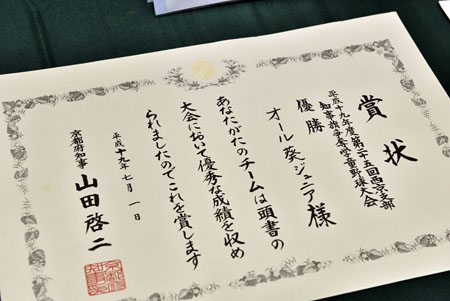 賞状
平成十九年度第二十五回西京支部
知事旗争奪学童野球大会
優勝
オール葵ジュニア様
あなたがたのチームは頭書の
大会において優秀な成績を収め
られましたのでこれを賞します
平成十九年七月一日
京都府知事 山田啓二